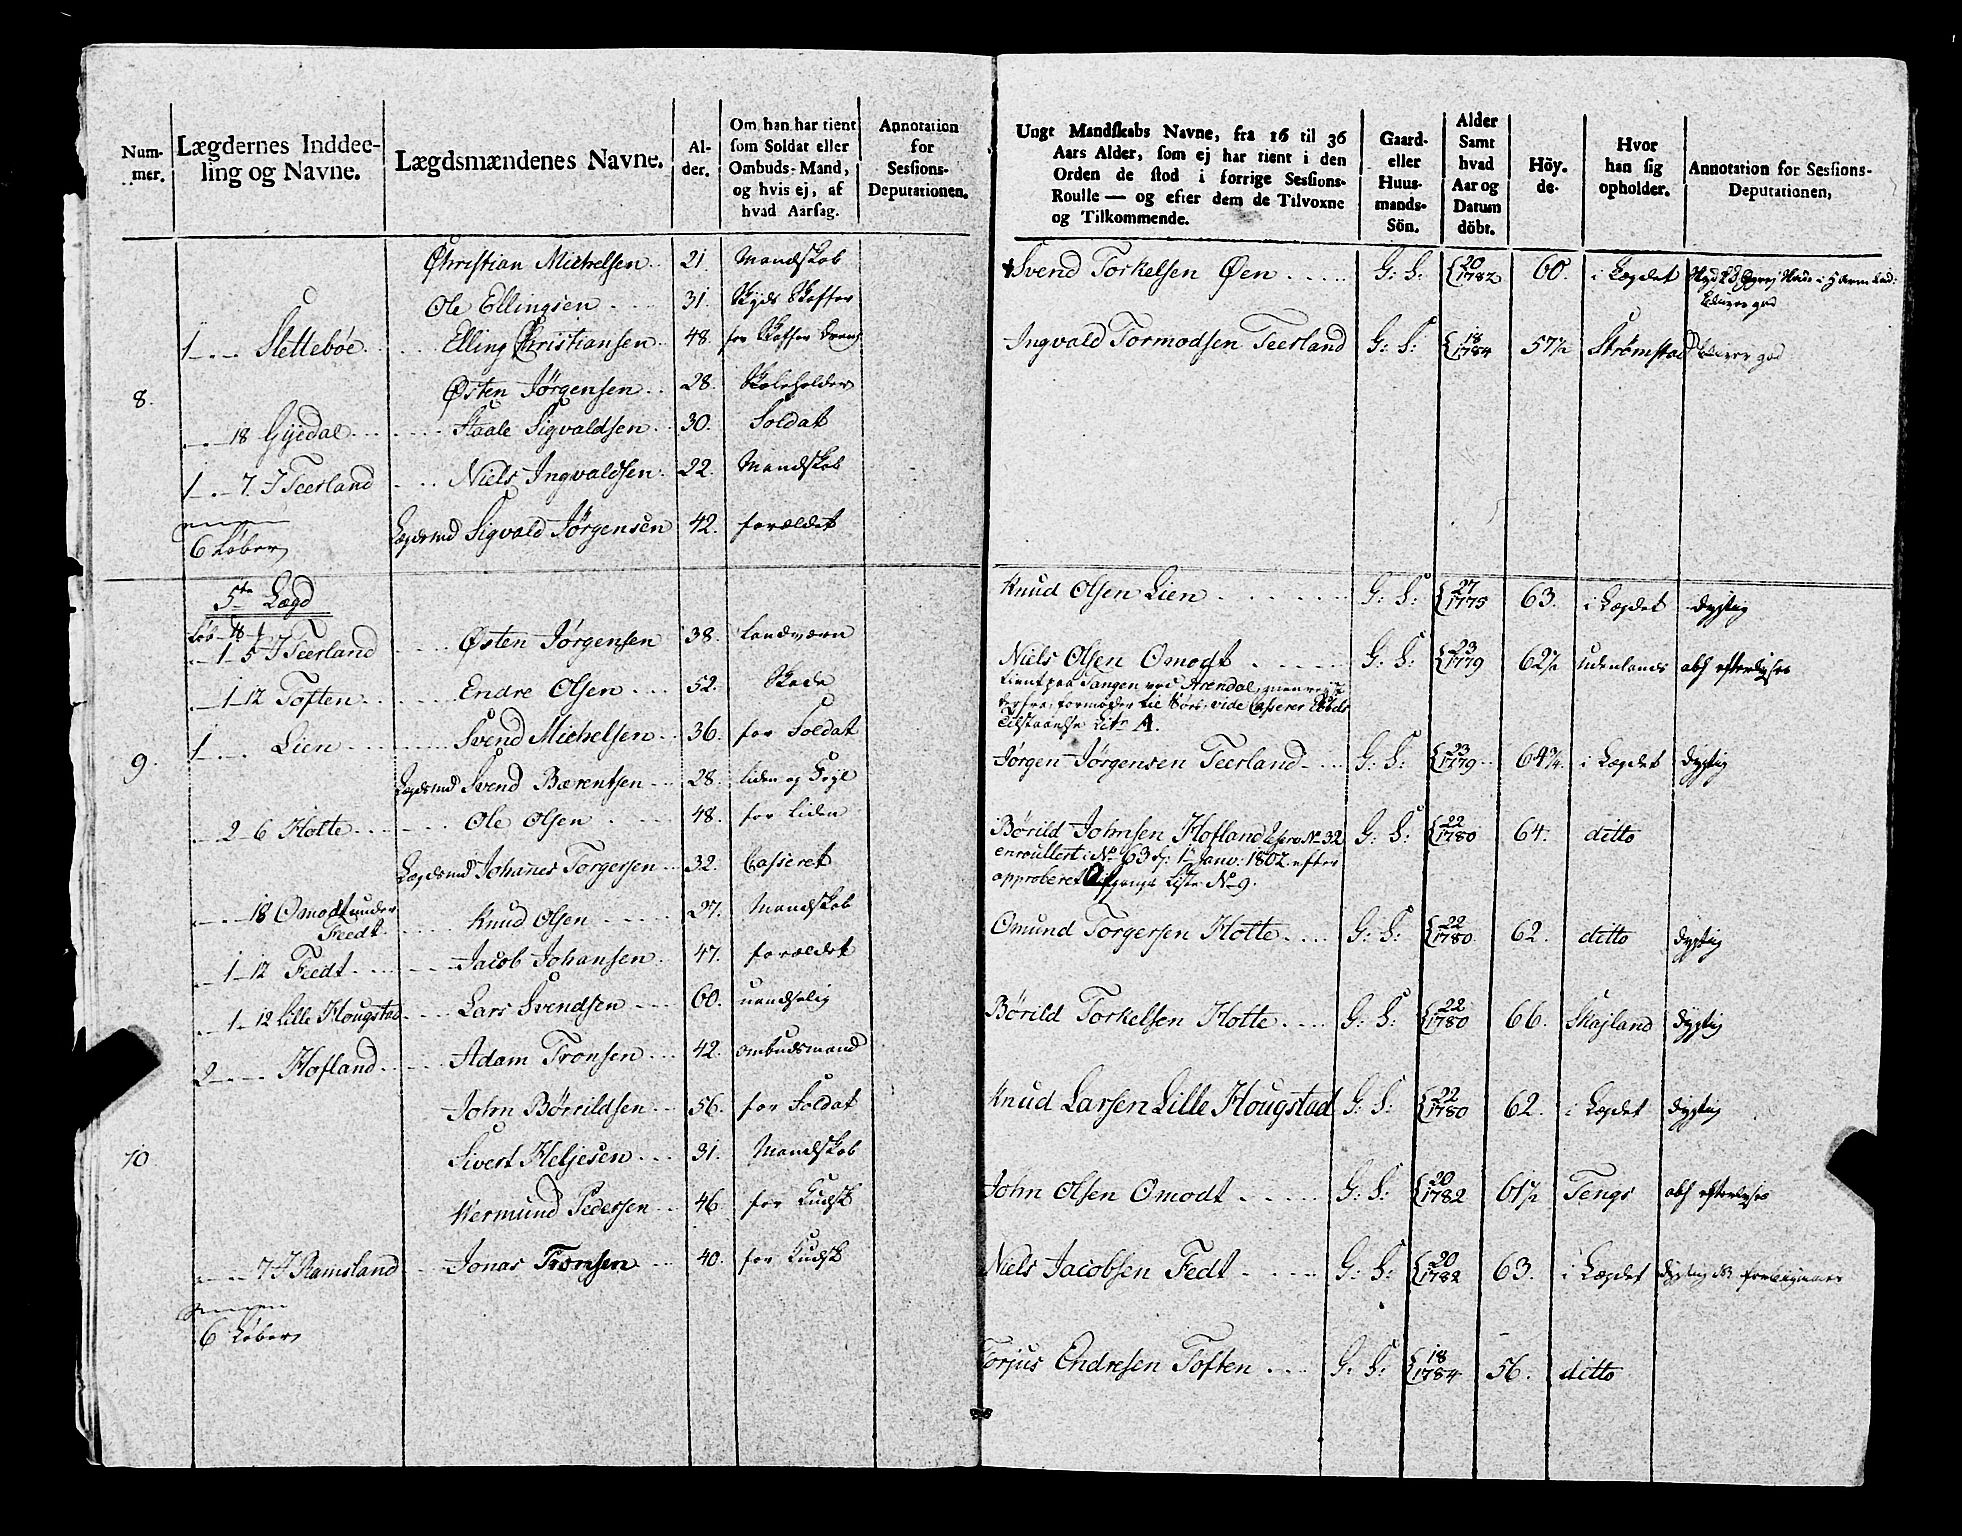 Num-
mer.
Lægdernes Inddee-
ling og Navne.
Lægdsmændenes Navne.
Al-
der.
Om han har tient
som Soldat eller
Ombuds-Mand,
og hvis ej, af
hvad Aarsag.
Annotation
for
Sessions-
Deputationen.
Christian Michelsen 21. Mandskab
Ole Ellingsen 31. Skyds Skaffer
1 Slettebøe Elling Christiansen 48. for Skaffer
8. Østen Jørgensen 28. Skoleholder
18 Gyedal Staale Sigvaldsen 30. Soldat
1 7. I Teerland Niels Ingvaldsen 22. Mandskab
Lægdsmd Sigvald Jørgensen 42. foreldet
6 Løber
5te Lægd
Løb
1 5 I Teerland Østen Jørgensen 38. Landværn
1 12 Toften Endre Olsen 52. Skade
1 Lien Svend Michelsen 36. for Soldat
9. Lægdsmd Svend Bærentsen 28. liden og
2 6 Hotte Ole Olsen 48. for liden
Lægdsmd Johanes Torgersen 32. Casseret
18 Omodt under
Feedt Knud Olsen 27. Mandskab
1 12 Fedt Jacob Johansen 47. foreldet
1 12 Lille Hougstad Lars Svendsen 60. uandselig
2 Hofland Adam Tronsen 42. ombudsmand
John Børrildsen 56. for Soldat
10 Sivert Heljesen 31. Mandskab
Wermund Pedersen 46. for
7 I Ramsland Jonas Tronsen 40. for
6 Løber
Ungt Mandskabs Navne, fra 16 til 36
Aars Alder, som ej har tient i den
Orden de stod i forrige Sessions-
Roulle — og efter dem de Tilvoxne
og Tilkommende.
Gaard-
eller
Huus-
mands-
Sön.
Alder
Samt
hvad
Aar og
Datum
döbt.
Höy-
de.
Hvor
han sig
opholder.
Annotation for Sessions-
Deputationen,
Svend Torkelsen Øen G: S: 20 1782 60. i Lægdet
Ingvald Tormodsen Teerland G: S: 18 1784 57½ Strømstad
Knud Olsen Lien G: S: 27 1775 63. i Lægdet dygtig
Niels Olsen Omodt G: S: 23 1779 62½ udenlands abs efterlyses
tient paa Tangen ved Arendal,
vide Casserer
Litr A.
Jørgen Jørgensen Teerland G: S: 23 1779 64¾ i Lægdet dygtig
Børild Johnsen Hofland No 32 G: S: 22 1780 64. ditto
enroullert i No 63 1 Janv: 1802 efter
approberet Afgangs Liste No 9.
Omund Torgersen Hotte G: S: 22 1780. 62. ditto dygtig
Børild Torkelsen Hotte G: S: 22 1780 66. Skajland dygtig
Knud Larsen Lille Hougstad G: S: 22 1780 62. i Lægdet dygtig
John Olsen Omodt G: S: 20 1782 61½ Tengs abs efterlyses
Niels Jacobsen Fedt G: S: 20 1782 63. i Lægdet dygtig
Torjus Endresen Toften G: S: 18 1784 56. ditto